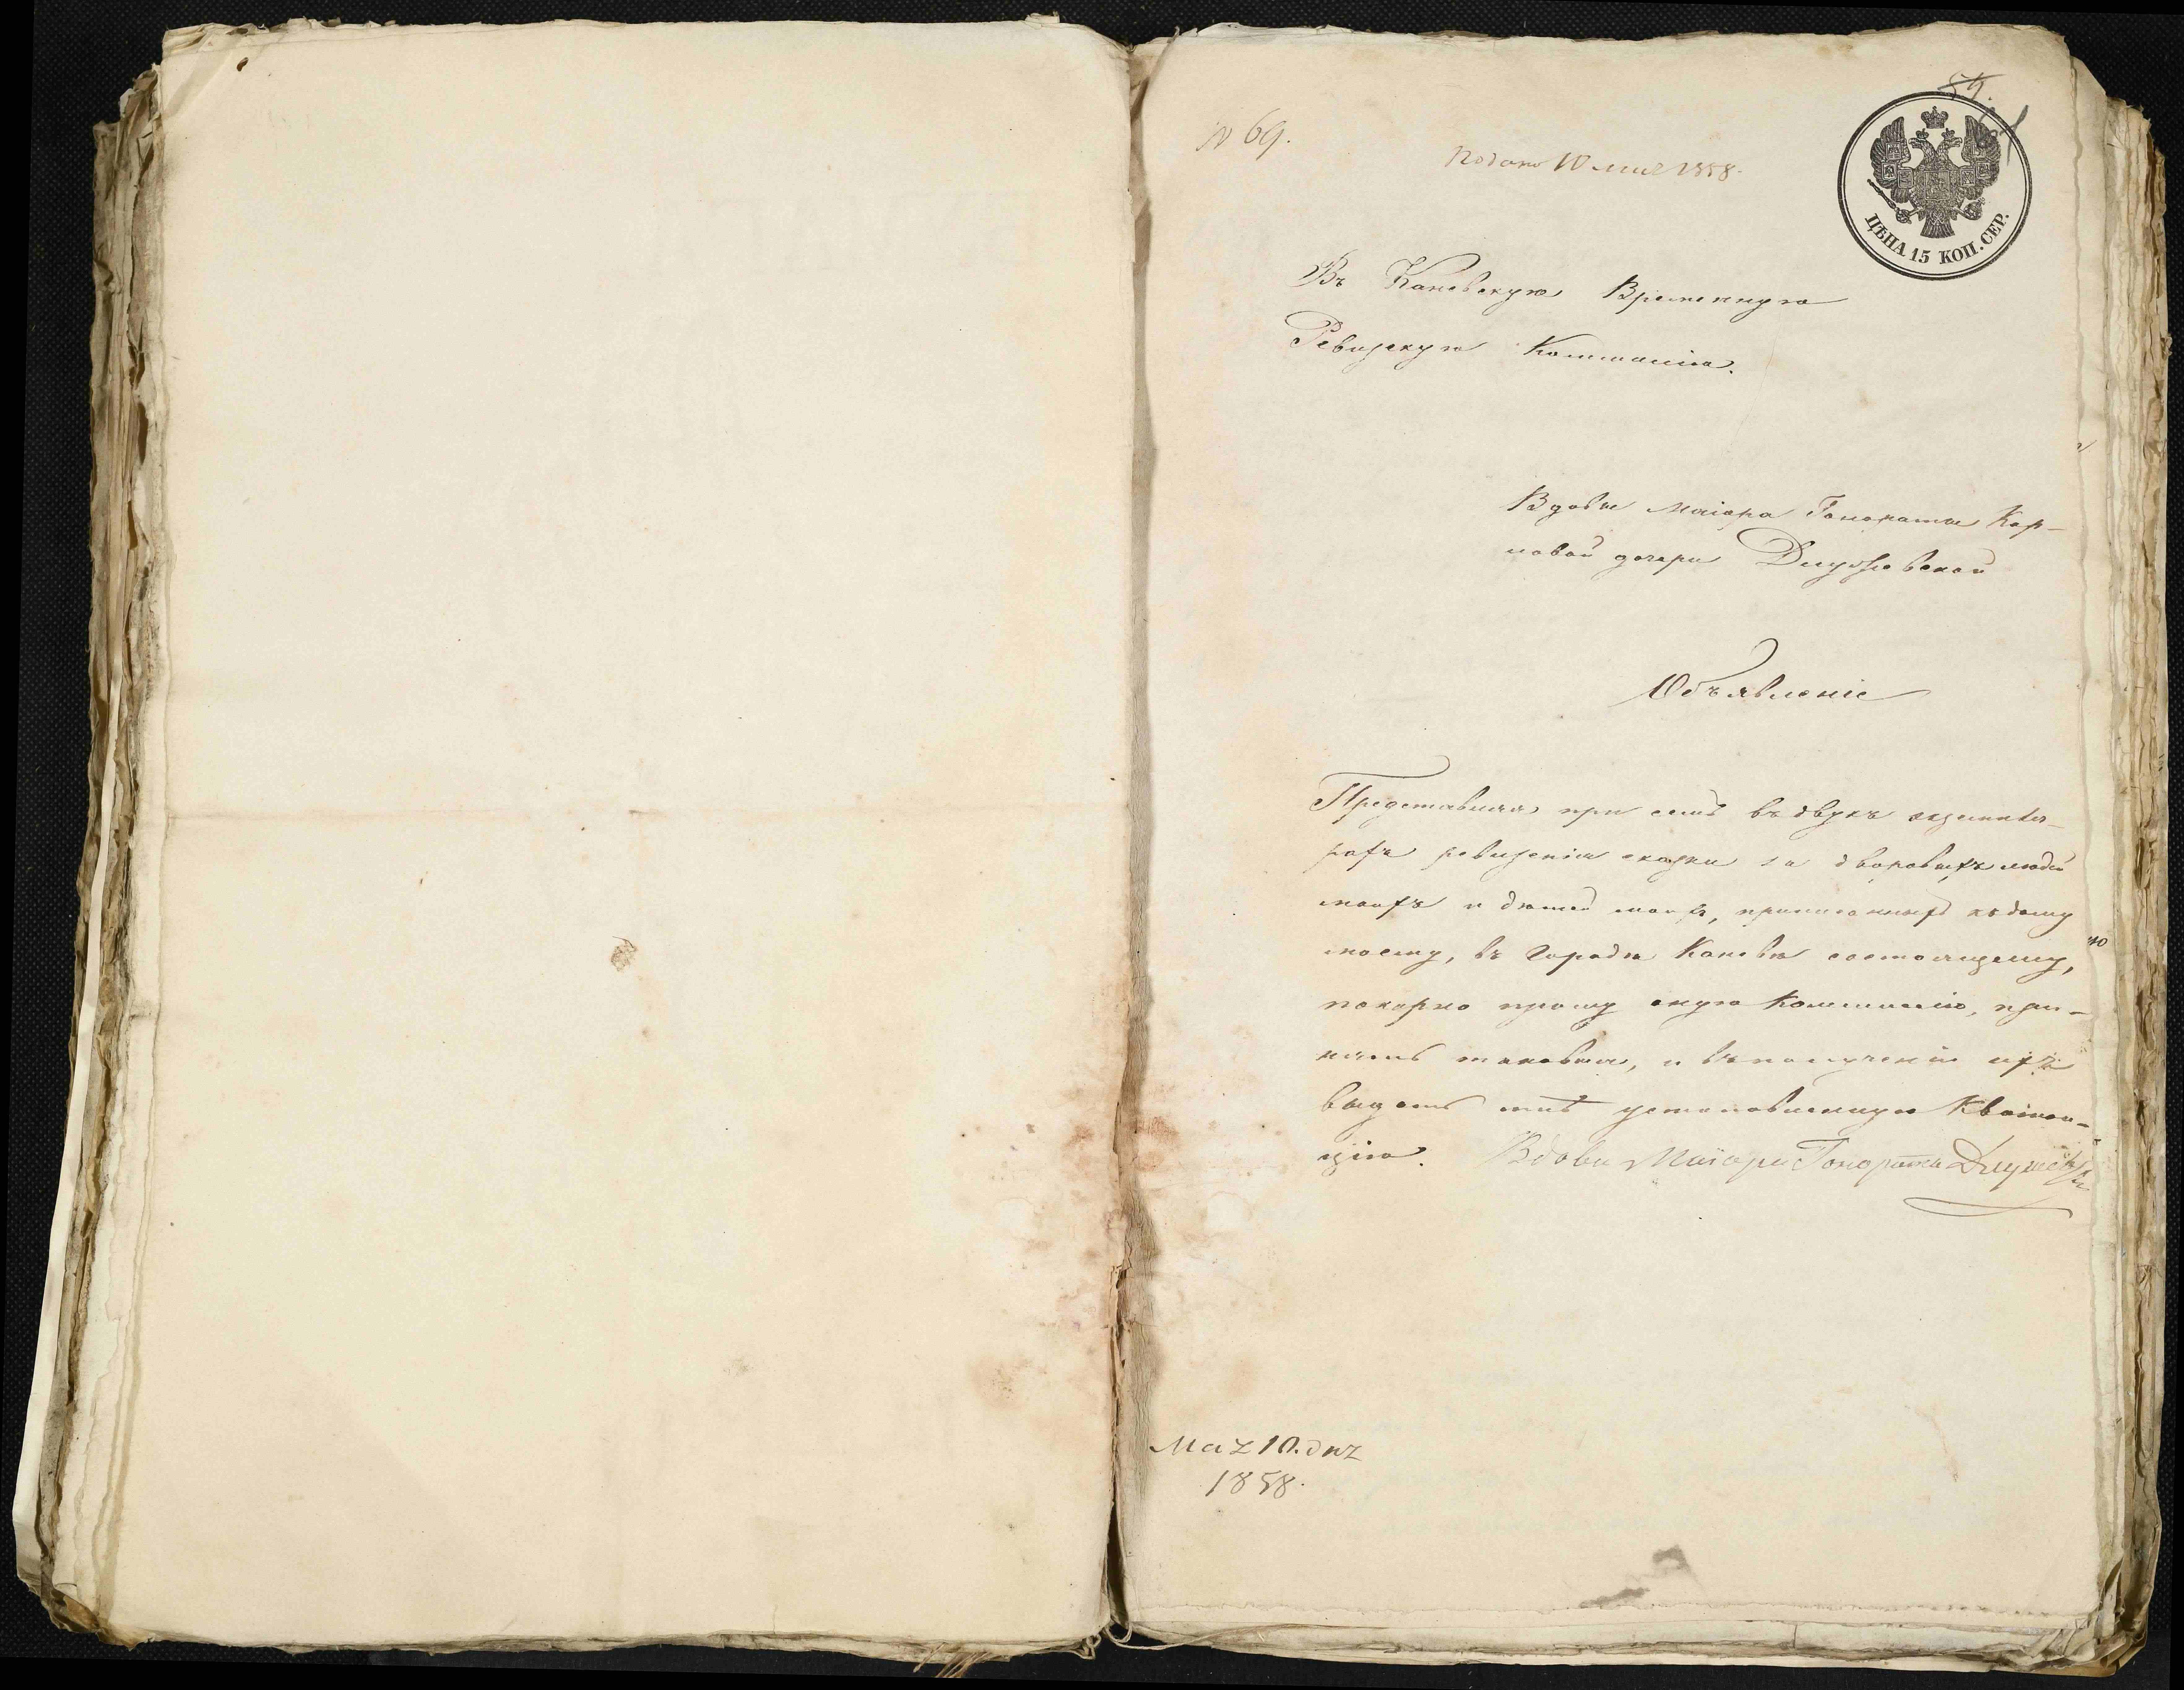 № 69.
Подано 10 мая 1858.
ЦѢНА 15 КОП. СЕР.
Въ Каневскую Временную
Ревизскую Коммисію.
Вдовы Маіора Гонораты Кар-
ловой дочери
Объявленіе
Представляя при семъ въ двухъ экземпля-
рахъ ревизскія сказки за дворовыхъ людей
моихъ и дѣтей моихъ, приписанныхъ къ дому
моему, въ городѣ Каневѣ состоящему,
покорно прошу оную Коммисію, при-
нять таковыя, и въ полученіи ихъ
выдать мнѣ установленную Квитан-
цію. Вдова Маіора Гонората
Мая 10. дня
1858.